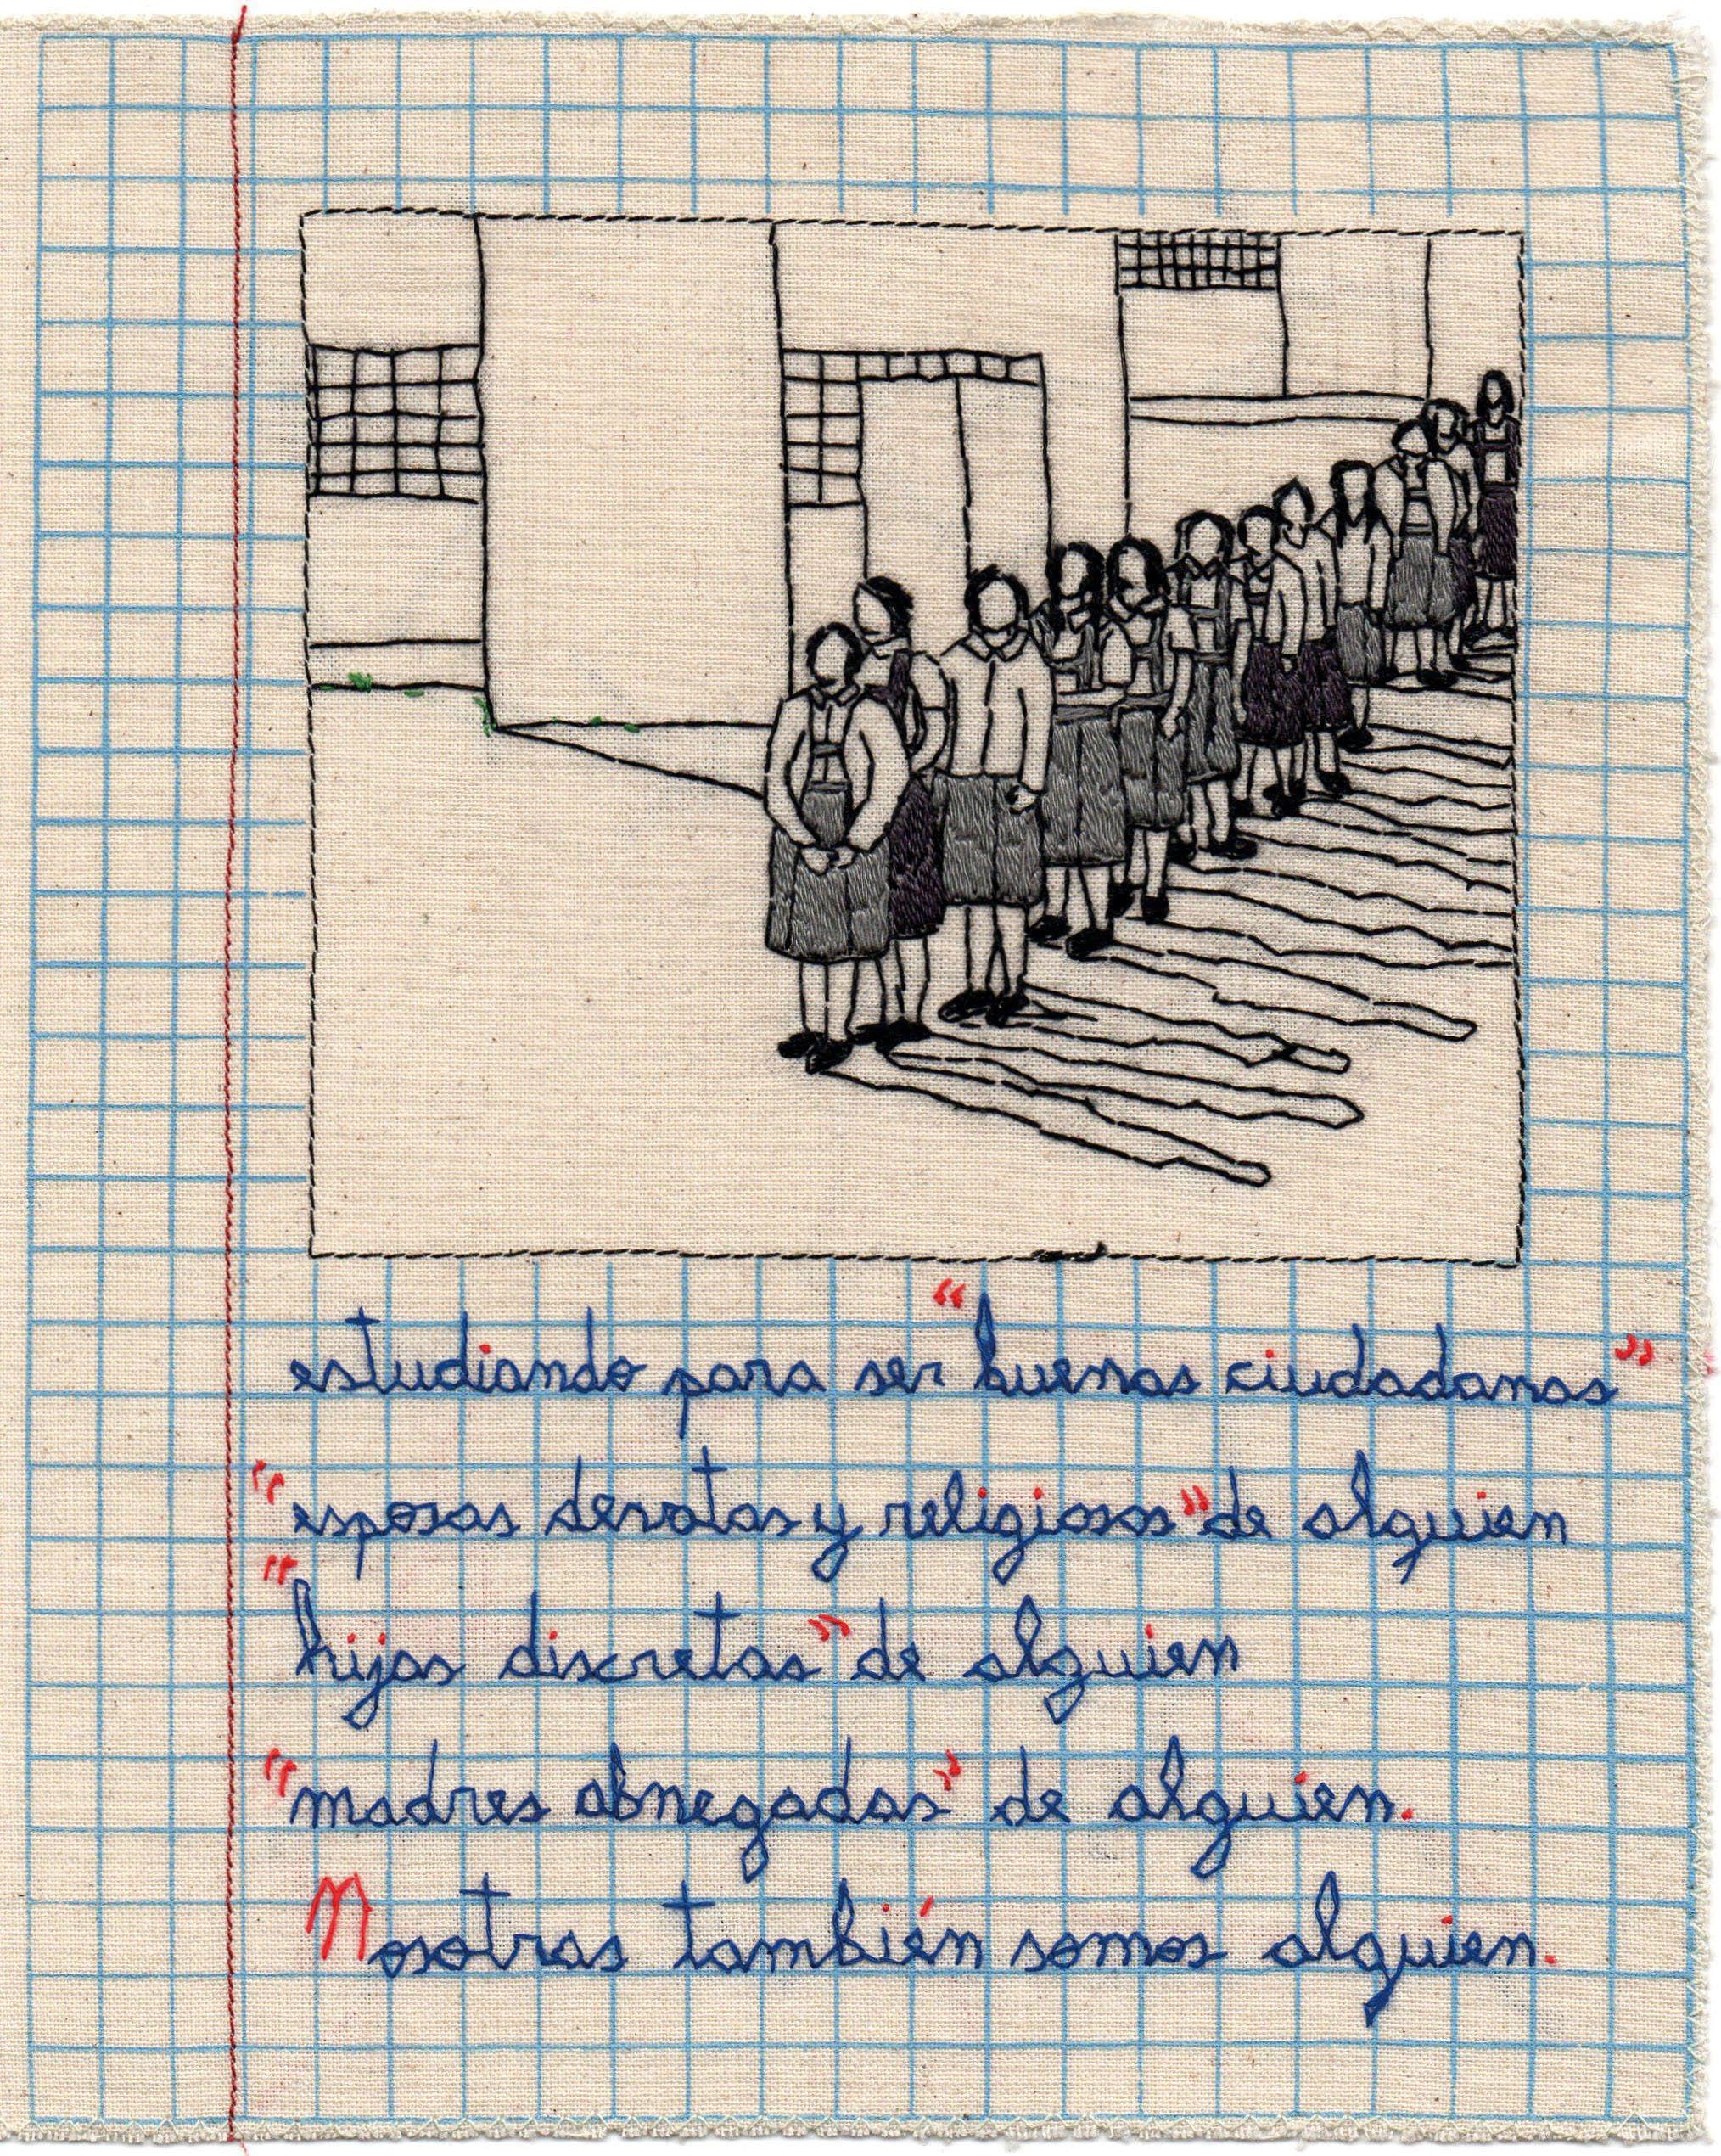 estudiando para ser “buenas ciudadanas”
“esposas devotas y religiosas” de alguien
“hijas discretas” de alguien
“madres abnegadas” de alguien.
Nosotras también somos alguien.